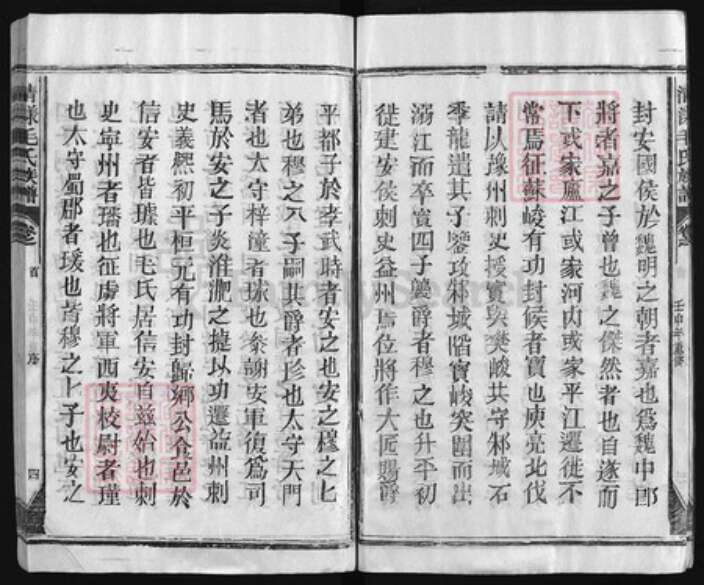 封安國侯於魏明之朝者嘉也爲魏中郎
將者嘉之子曾也魏之傑然者也自遂而
下或家廬江或家河内或家平江遷徙不
常焉征蘇峻有功封候者寶也庾亮北伐
請以豫州刺史授寶與樊峻共守邾城石
季龍遣其子鑒攻邾城陷寶峻突圍而出
溺江而卒寶四子襲爵者穆之也升平初
從建安侯刺史益州焉位將作大匠賜爵
平都子於孝武時者安之也安之穆之七
弟也穆之六子嗣其爵者珍也太守天門
者也太守梓潼者球也叅謝安軍復爲司
馬於安之子炎淮淝之挺以功遷益州刺
史義熙初平桓元有功封歸鄉公食邑於
信安者皆璩也毛氏居信安自兹始也刺
史寧州者璠也征虜將軍西夷校尉者瑾
也太守蜀郡者瑗也皆穆之七子也安之
清漾毛氏族譜
卷
首
序
四
清漾毛氏族譜